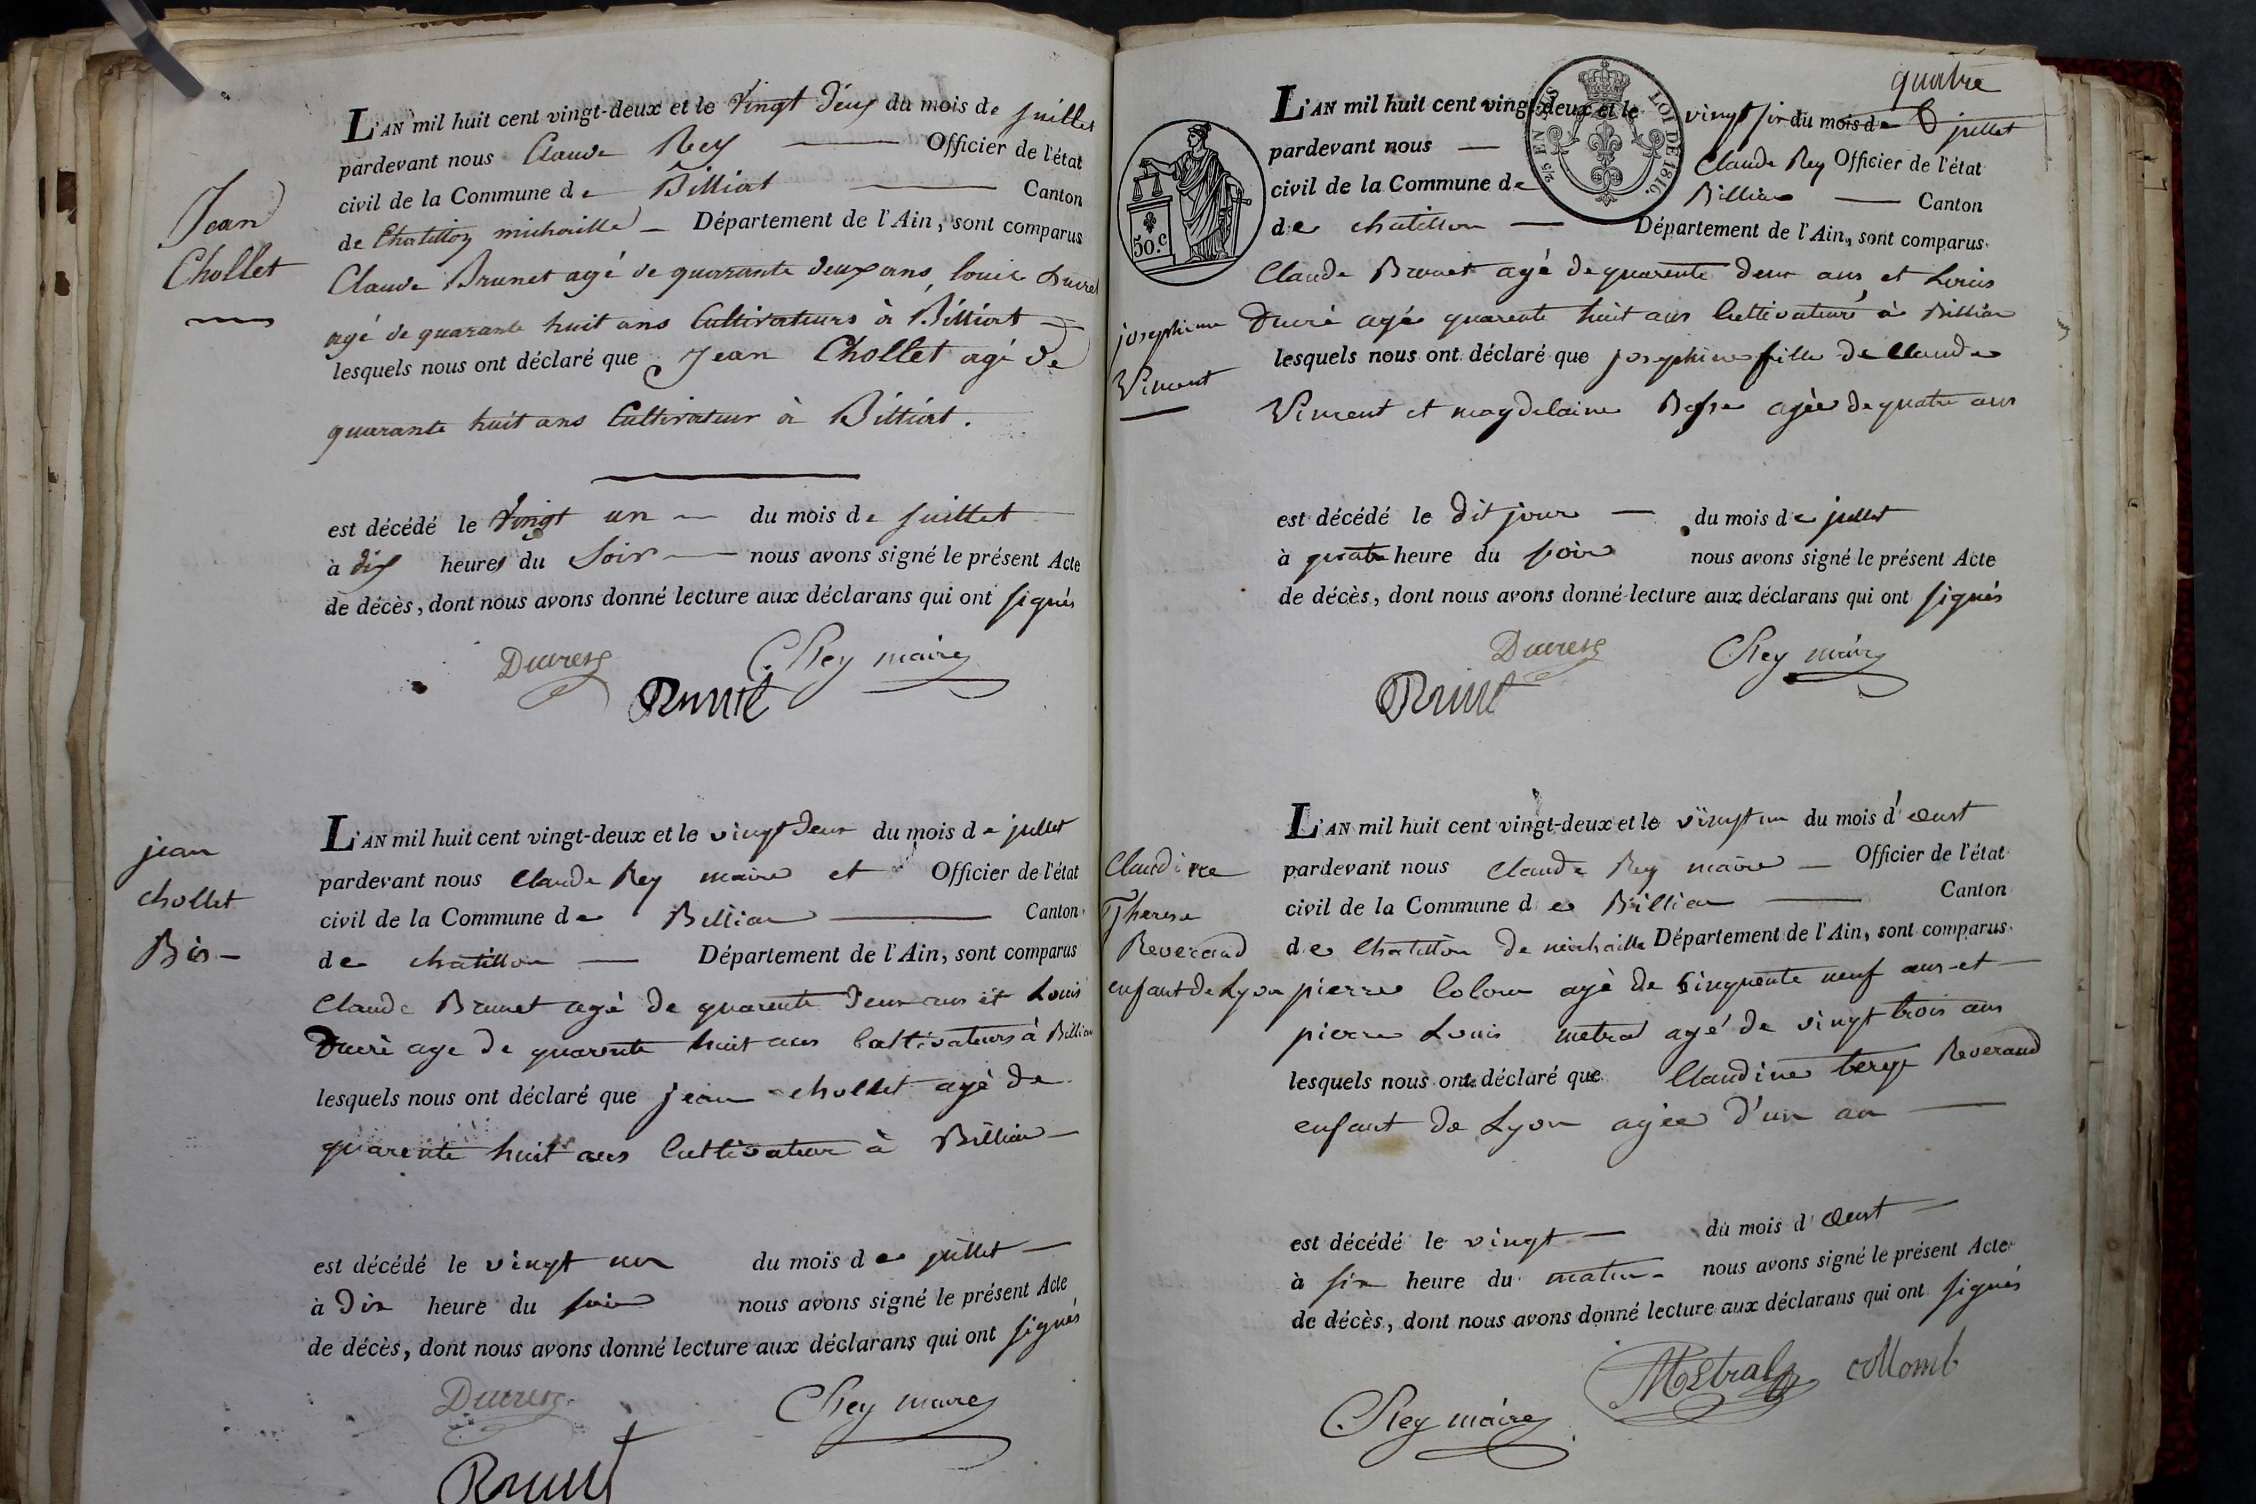 Jean
Chollet
L'AN mil huit cent vingt-deux et le Vingt Deux du mois de juillet
pardevant nous Claude Rey Officier de l'état
civil de la Commune de Billiat Canton
de Chatillon michaille Département de l'Ain, sont comparus
Claude Brunet agé de quarante deux ans, louis Ducret
agé de quarante huit ans Cultivateurs à Billiat
lesquels nous ont déclaré que Jean Chollet agé de
quarante huit ans Cultivateur à Billiat.
est décédé le Vingt un du mois de juillet
à dix heures du Soir nous avons signé le présent Acte
de décès, dont nous avons donné lecture aux déclarans qui ont signés
Ducret
C. Rey maire
Brunet
jean
chollet
Bis
L'AN mil huit cent vingt-deux et le vingt deux du mois de jullet
pardevant nous Claude Rey maire et Officier de l'état
civil de la Commune de Billiat Canton
de chatillon Département de l'Ain, sont comparus
Claude Brunet agé de quarente deux ans et Louis
Ducré age de quarente huit ans Cultivateurs à Billiat
lesquels nous ont déclaré que jean chollet agé de
quarente huit ans Cultivateur à Billiat
est décédé le vingt un du mois de juillet
à Dix heure du soir nous avons signé le présent Acte
de décès, dont nous avons donné lecture aux déclarans qui ont signés
Ducret
C Rey maire
Brunet
quatre
EN SUS
LOI DE 1816.
50.c
josephinne
Viment
L'AN mil huit cent vingt-deux et le vingt six du mois de jullet
pardevant nous Claude Rey Officier de l'état
civil de la Commune de Billiat Canton
de chatillon Département de l'Ain, sont comparus
Claude Brunet agé de quarente deux ans et Louis
Ducré agé quarente huit ans Cultivateurs à Billiat
lesquels nous ont déclaré que josephine fille de Claude
Viment et magdelaine agée de quatre ans
est décédé le dit jour du mois de jullet
à quatre heure du soir nous avons signé le présent Acte
de décès, dont nous avons donné lecture aux déclarans qui ont signés
Ducret
C Rey maire
Brunet
Claudine
Therese
Reveraud
enfant de Lyon
L'AN mil huit cent vingt-deux et le vingt un du mois d'oust
pardevant nous Claude Rey maire Officier de l'état
civil de la Commune de Billiat Canton
de Chatillon de michaille Département de l'Ain, sont comparus
pierre Colom agé de Cinquente neuf ans et
pierre Louis metral agé de vingt trois ans
lesquels nous ont déclaré que Claudine Reveraud
enfant de Lyon agée d'un an
est décédé le vingt du mois d'oust
à six heure du matin nous avons signé le présent Acte
de décès, dont nous avons donné lecture aux déclarans qui ont signés
Metral
collomb
C. Rey maire